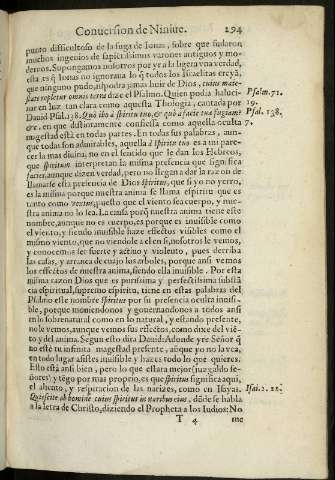 Conuersion de Niniue. 294
punto dificultoso de la fuga de Ionas, sobre que sudaron
muchos ingenios de sapientissimos varones antiguos y mo-
dernos. Supongamos nosotros por yr a la ligera vna verdad,
esta es q̃ Ionas no ignoraua lo q̃ todos los Israelitas creyã,
que ninguno pudo, ni podra jamas huir de Dios, cuius maie-
state repletur omnis terra dize el Psalmo. Quien podia haluci-
nar en luz tan clara como aquesta Thologia, cantada por
Dauid Psal. 138. Quò ibo à spiritu tuo, & quò a facie tua fugiam?
&c. en que distintamente confiessa como aquella oculta
magestad està en todas partes. En todas sus palabras, aun-
que todas son admirables, aquella à spiritu tuo es a mi pare-
cer la mas diuina, no en el sentido que le dan los Hebreos,
que spiritum interpretan la misma presencia que significa
facies, aunque dizen verdad, pero no llegan a dar la razon de
llamarse esta presencia de Dios spiritus, que si yo no yerro,
es la misma porque nuestra anima se llama espiritu que es
tanto como ventus, puesto que el viento sea cuerpo, y nue-
stra anima no lo sea. La causa porq̃ nuestra anima tiene este
nombre, aunque no es cuerpo, es porque es inuisible como
el viento, y siendo inuisible haze effectos visibles como el
mismo viento, que no viendole a el en si, nosotros le vemos,
y conocemos ser fuerte y actiuo y violento, pues derriba
las casas, y arranca de cuajo los arboles, porque ansi vemos
los effectos de nuestra anima, siendo ella inuisible. Por esta
misma razon Dios que es purissima y perfectissima substã
cia espiritual, supremo espiritu, tiene en estas palabras del
Psalmo este nombre spiritus por su presencia oculta inuisi-
ble, porque mouiendonos y gouernandonos a todos ansi
en lo sobrenatural como en lo natural, y estando presente,
no le vemos, aunque vemos sus effectos, como dixe del viẽ-
to y del anima. Segun esto dira Dauid: Adonde yre Señor q̃
no estè tu infinita magestad presente, aũque yo no la vea,
en todo lugar assistes inuisible y hazes todo lo que quieres.
Esto està ansi bien, pero lo que estara mejor (juzgaldo se-
ñores) y tẽgo por mas proprio, es que spiritus significa aqui,
el aliento, y respiracion de las narizes, como en Isayas.
Quiescite ab homine cuius spiritus in naribus eius, dõde se habla
a la letra de Christo, diziendo el Propheta a los Iudios: No
T 4 me
Psalm. 71.
19.
Psal. 138.
7.
Isai. 2. 22.